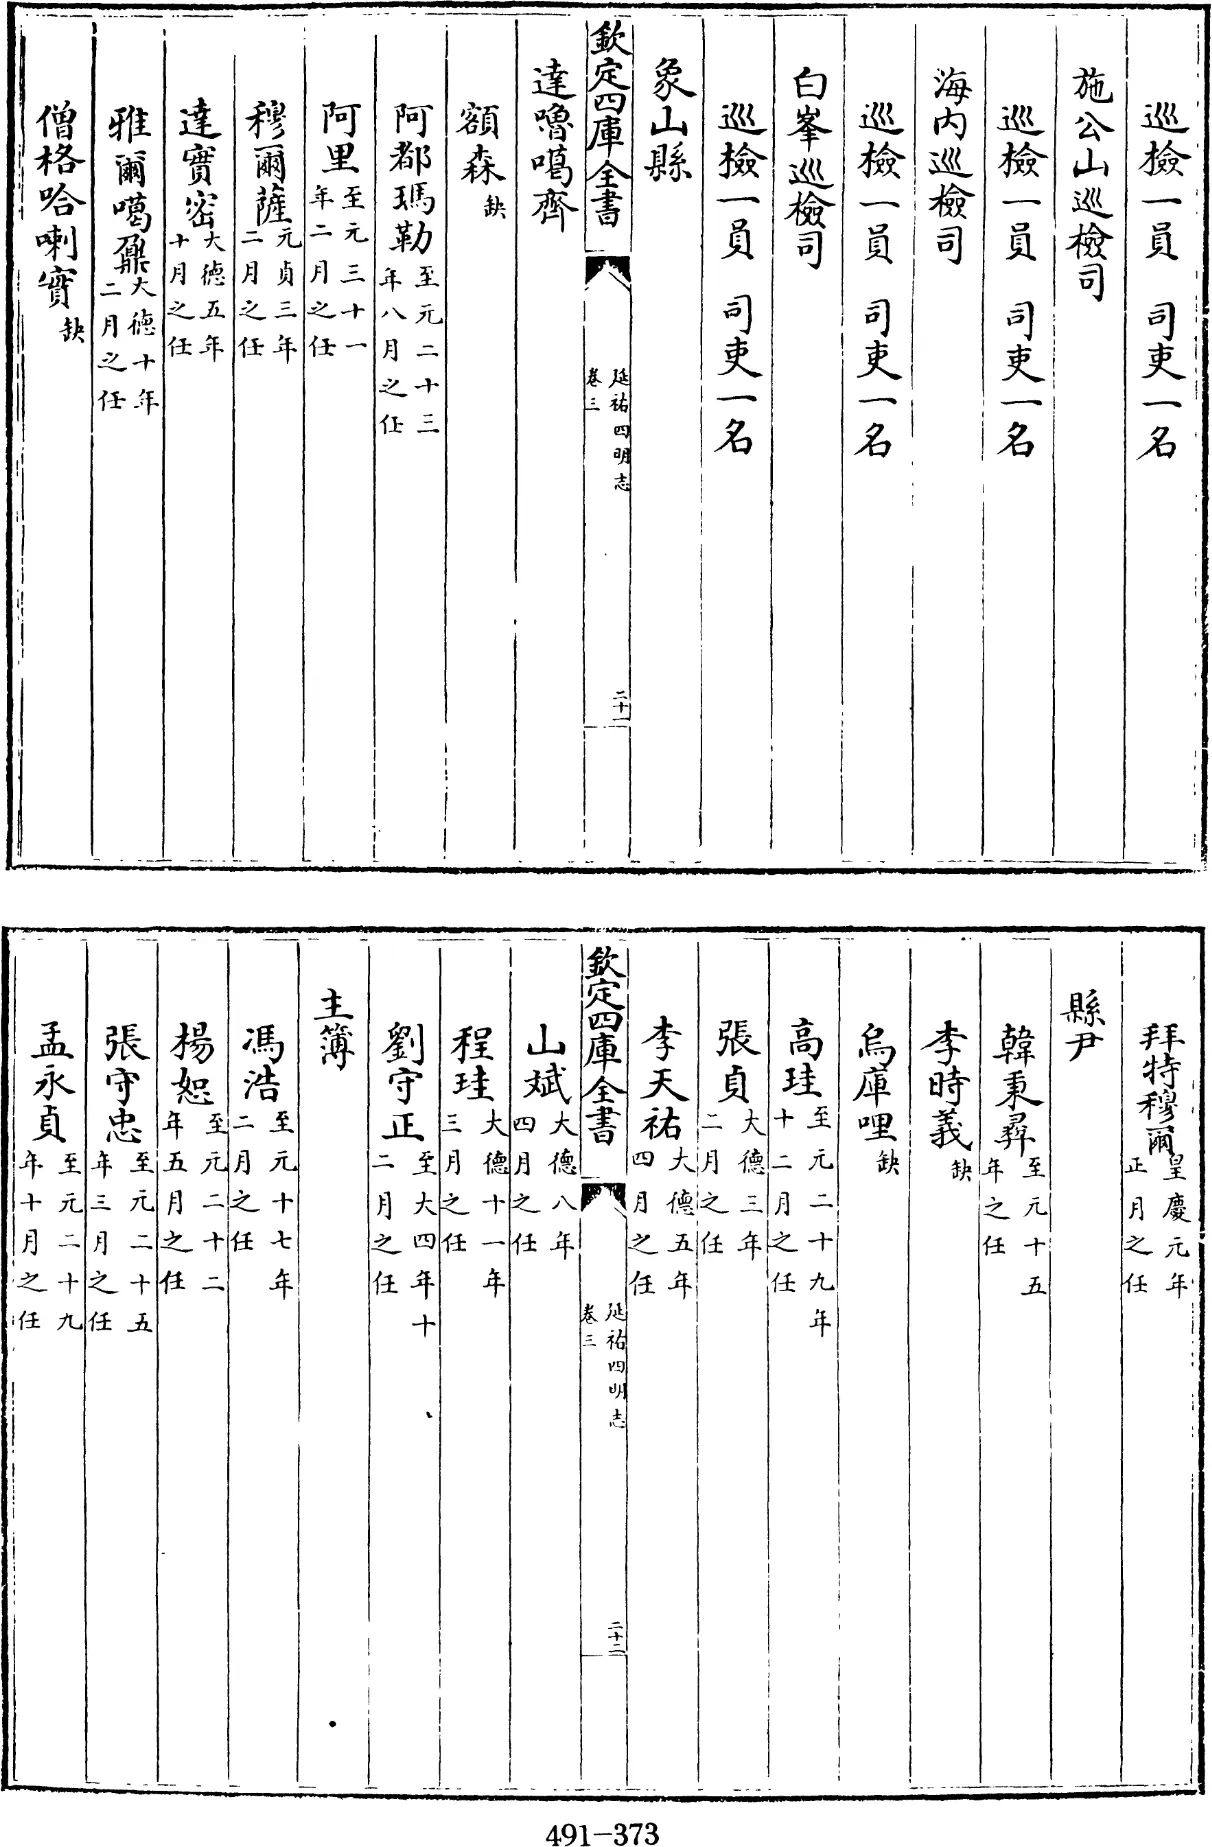 巡檢一員　司吏一名
施公山巡檢司
巡檢一員　司吏一名
海内巡檢司
巡檢一員　司吏一名
白峯巡檢司
巡檢一員　司吏一名
象山縣
欽定四庫全書
延祐四明志
卷三
二十一
達嚕噶齊
額森缺
阿都瑪勒至元二十三年八月之任
阿里至元三十一年二月之任
穆爾薩元貞三年二月之任
達實密大德五年十月之任
雅爾噶鼐大德十年二月之任
僧格哈喇實缺
拜特穆爾皇慶元年正月之任
縣尹
韓秉彛至元十五年之任
李時義缺
烏庫哩缺
高珪至元二十九年十二月之任
張貞大德三年二月之任
李天祐大德五年四月之任
欽定四庫全書
延祐四明志
卷三
二十二
山斌大德八年四月之任
程珪大德十一年三月之任
劉守正至大四年十二月之任
主簿
馮浩至元十七年二月之任
楊恕至元二十二年五月之任
張守忠至元二十五年三月之任
孟永貞至元二十九年十月之任
491-373